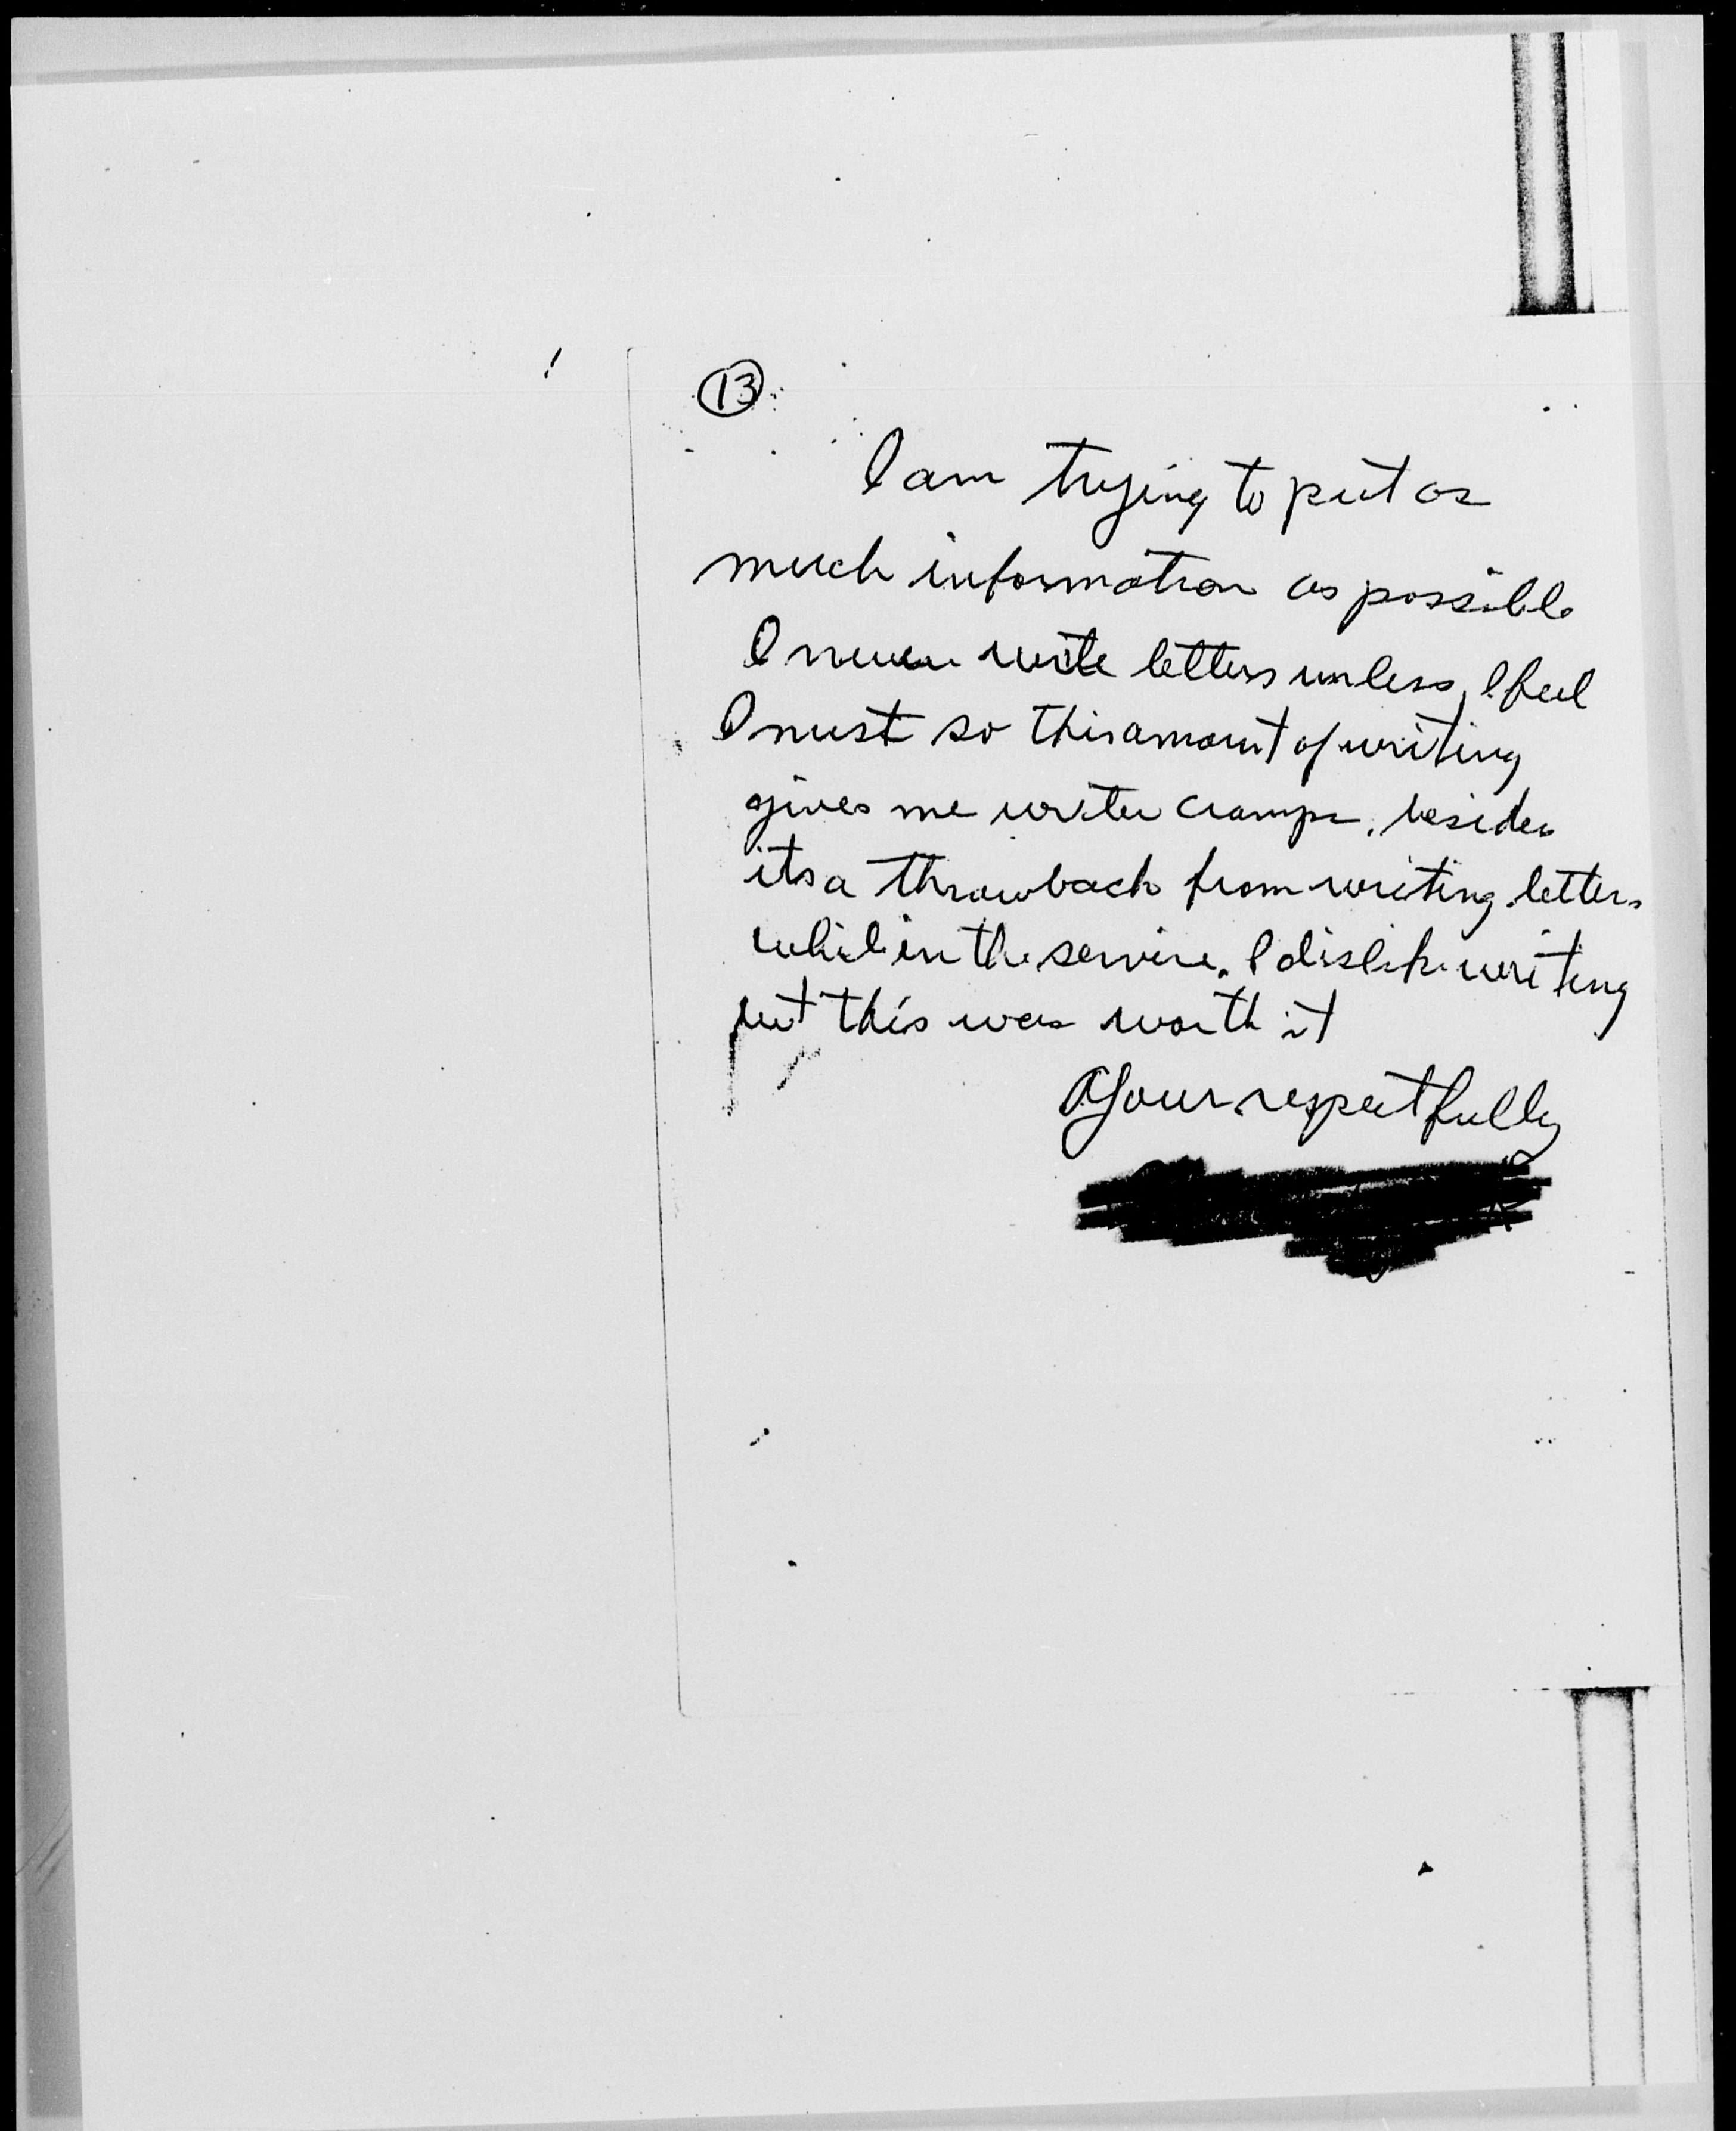 13
I am trying to put as
much information as possible
I never write letters unless I feel
I must so this amount of writing
gives me writer cramps, besides
its a throwback from writing letters
while in the service. I dislike writing
but this was worth it
Your respectfully